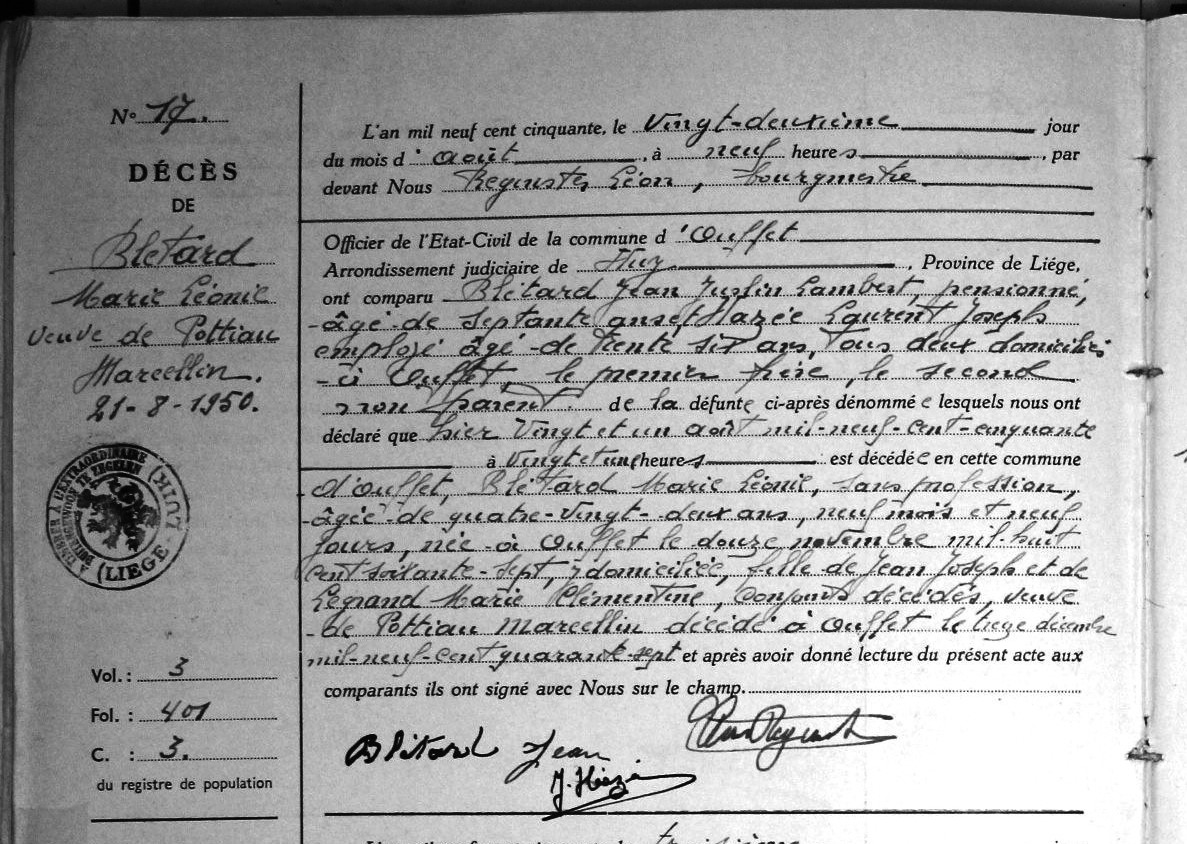 N° 17.
DÉCÈS
DE
Blétard
Marie Léonie
veuve de Pottiau
Marcellin.
21-8-1950.
(LIEGE)
Vol. : 3
Fol. : 401
C. : 3.
du registre de population
L'an mil neuf cent cinquante, le vingt-deuxième jour
du mois d'août, à neuf heures, par
devant Nous Léon, bourgmestre
Officier de l'Etat-Civil de la commune d'Ouffet
Arrondissement judiciaire de Huy, Province de Liége,
ont comparu Blétard Jean Justin Lambert, pensionné,
âgé de septante ans et Hazée Laurent Joseph
employé âgé de trente six ans, tous deux domiciliés
à Ouffet, le premier frère, le second
non parent de la défunte ci-après dénommée lesquels nous ont
déclaré que hier vingt et un août mil-neuf-cent-cinquante
à vingt et une heures est décédée en cette commune
d'Ouffet, Blétard Marie Léonie, sans profession,
âgée de quatre-vingt-deux ans, neuf mois et neuf
jours, née à Ouffet le douze novembre mil-huit
cent soixante-sept, y domiciliée, fille de Jean Joseph et de
Legrand Marie Clémentine, conjoints décédés, veuve
de Pottiau Marcellin décédé à Ouffet le treize décembre
mil-neuf-cent quarante-sept et après avoir donné lecture du présent acte aux
comparants ils ont signé avec Nous sur le champ.
Blétard Jean